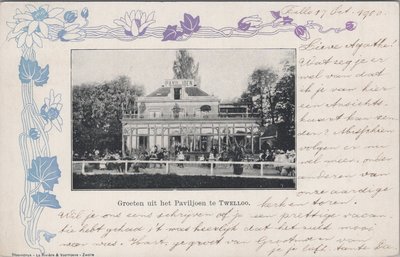 Tulle 17 Oct. 1900.
Lieve Agathe!
Wat zeg je er
wel van dat
ik je van hier
een Ansichts
kaart kan zen
den? Misschien
volgen er nu
wel meer, onder
anderen van
onze aardige
kerk en toren.
GRAND JEEN
Groeten uit het Paviljoen te TWELLOO.
Wil je ons eens schrijven of je een prettige vacan
tie hebt gehad 't was heerlijk dat het zulk mooi
weer was. Hart. je groet van Grootmoe en van
je je liefh. tante Da
Phototypie - La Rivière & Voorhoeve - Zwolle